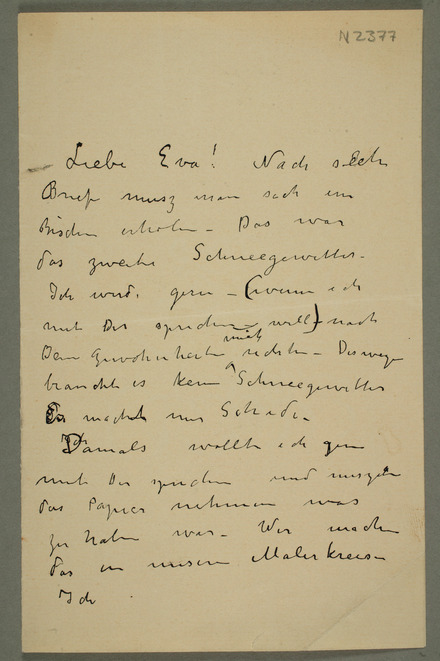 N 2377
Liebe Eva! Nach solch
Brief musz man sich ein
Bischen erholen – Das war
das zweite Schneegewitter –
Ich werde gern – (wenn ich
mit Dir sprechen will) – nach
Dein Gewohnheiten mich richten – Deswegen
braucht es kein Schneegewitter
Es macht nur Schade –
Damals wollte ich gern
mit Dir sprechen und muszte
das Papier nehmen was
zu haben war – Wir machen
das in unserm Malerkreise –
Ich